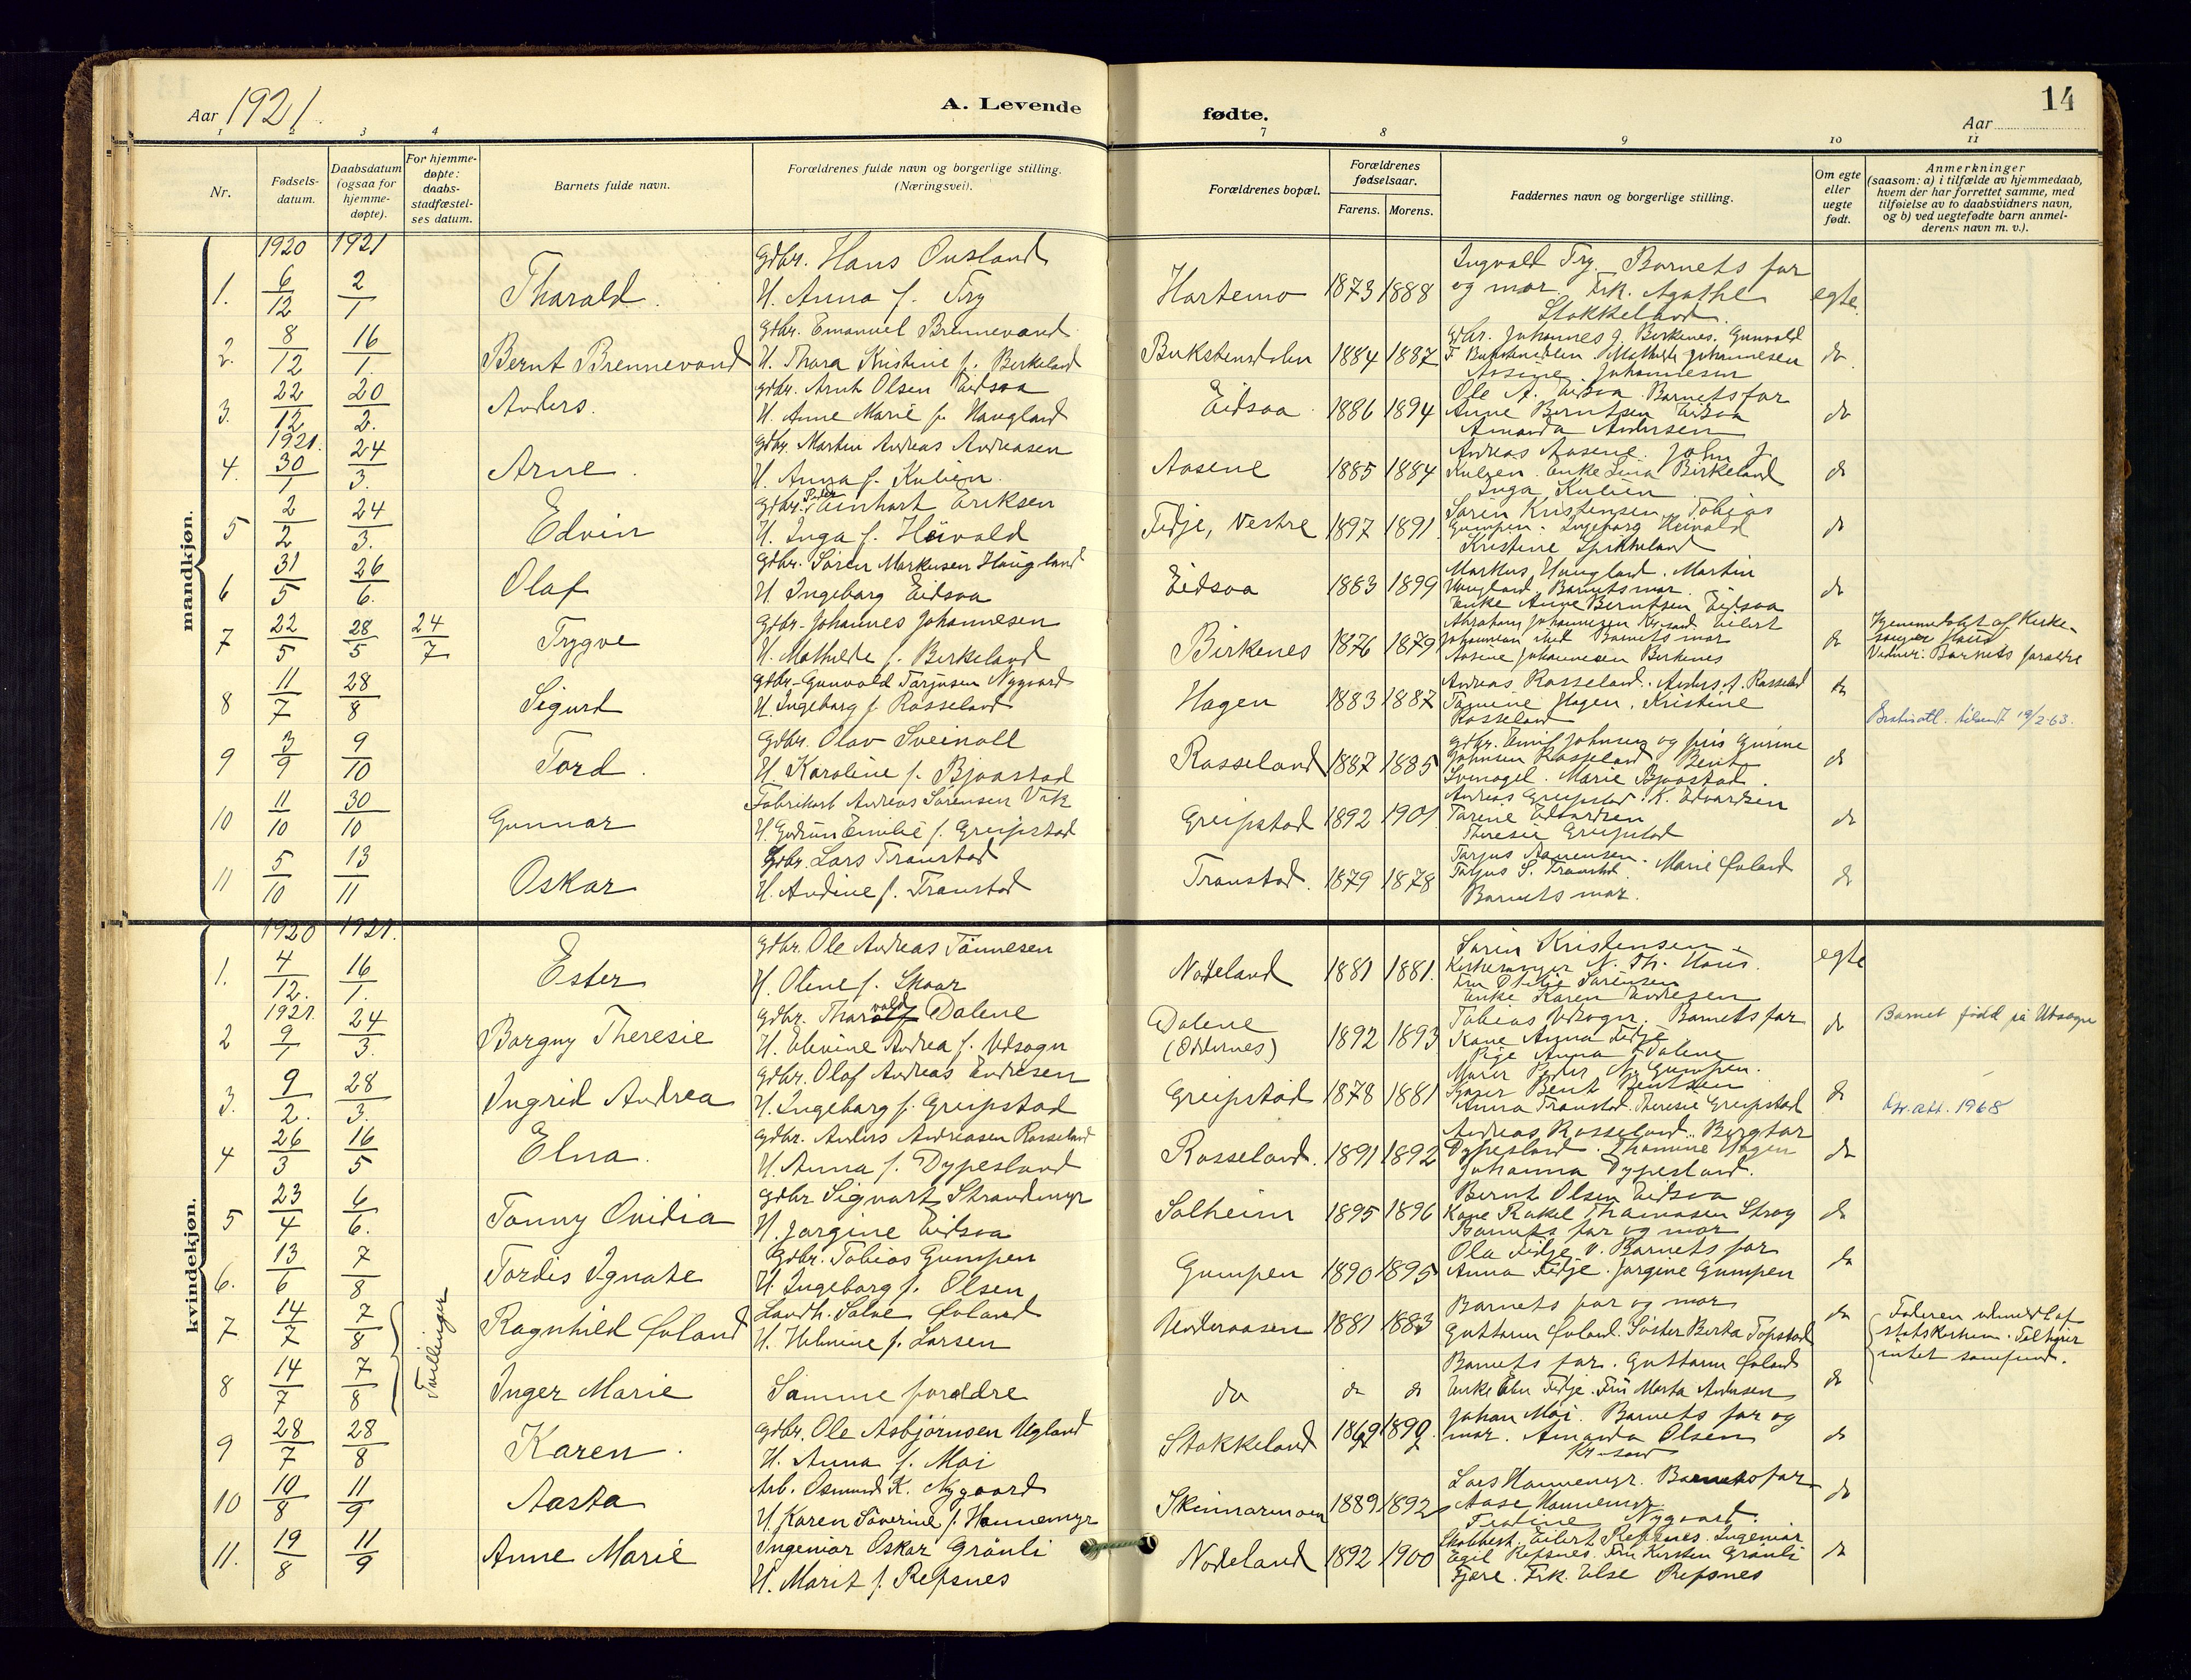 Aar 1921.
A. Levende
fødte.
14
Aar
1 2 3 4 7 8 9 10 11
Nr.
Fødsels-
datum.
Daabsdatum
(ogsaa for
hjemme-
døpte).
For hjemme-
døpte:
daabs-
stadfæstel-
ses datum.
Barnets fulde navn.
Forældrenes fulde navn og borgerlige stilling.
(Næringsvei).
Forældrenes bopæl.
Forældrenes
fødselsaar.
Farens. Morens.
Faddernes navn og borgerlige stilling.
Om egte
eller
uegte
født.
Anmerkninger
(saasom: a) i tilfælde av hjemmedaab,
hvem der har forrettet samme, med
tilføielse av to daabsvidners navn,
og b) ved uegtefødte barn anmel-
derens navn m. v.).
mandkjøn.
1920 1921
1. 6/12 2/1 Tharald. Gdbr. Hans Ousland
H. Anna f. Try
Hortemo 1873 1888 Ingvald Try. Barnets far
og mor. Frk. Agathe
Stokkeland. egte.
2. 8/12 16/1. Bernt Brennevand Gdbr. Emanuel Brennevand
H. Thora Kristine f. Birkeland
1884 1887 Gdbr. Johannes J. Birkenes. Gunvald
Mathilde Johannesen
Aasine Johannesen do
3. 22/12 20/2. Anders. Gdbr. Arnt Olsen Eidsaa
H. Anne Marie f. Haugland
Eidsaa 1886 1894 Ole A. Eidsaa. Barnets far
Anne Berntsen Eidsaa
Amanda Andersen do
1921.
4. 30/1 24/3. Arne. Gdbr. Martin Andreas Andreasen
H. Anna f. Kulien.
Aasene 1885 1884 Andreas Aasene. John J.
Kulien. Enke Lina Birkeland
Inga Kulien do
5 2/2 24/3. Edvin Gdbr. Peder Einhart Eriksen
H. Inga f. Heivald
Fidje, Vestre 1897 1891 Søren Kristensen. Tobias
Gumpen. Ingeborg Heivald
Kristine Spikkeland do
6 31/5 26/6. Olaf Gdbr. Søren Markusen Haugland
H. Ingeborg Eidsaa
Eidsaa 1883 1899 Markus Haugland. Martin
Haugland. Barnets mor.
Enke Anne Berntsen Eidsaa do
7 22/5 28/5 24/7 Trygve Gdbr. Johannes Johannesen
H. Mathilde f. Birkeland
Birkenes 1876 1879 Abraham Johannesen Kr.sand Eilert
Johannesen ibid Barnets mor
Aasine Johannesen Birkenes do Hjemmedøbt af Kirke-
sanger Haus
Vidner: Barnets forældre
8 11/7 28/8 Sigurd Gdbr. Gunvald Tarjusen Nygaard
H. Ingeborg f. Rosseland
Hagen 1883 1887 Andreas Rosseland. Anders A. Rosseland
Tomine Hagen. Kristine
Rosseland do tilsendt 19/2-63.
9 3/9 9/10 Tord. Gdbr. Olav Sveinall
H. Karoline f. Bjaastad
Rosseland 1887 1885 Gdbr. Emil Johnsen og frue Gurine
Johnsen Rosseland. Bent
Svenagel. Marie Bjaastad. do
10 11/10 30/10 Gunnar Fabrikarb Andreas Sørensen Vik
H. Gudrun Emilie f. Greipstad
Greipstad 1892 1901 Andreas Greipstad. K. Edvardsen
Tarene Edvardsen
Theresie Greipstad do
11 5/10 13/11 Oskar Gdbr. Lars Transtad
H. Andine f. Transtad
Transtad. 1879 1878 Tarjus
Tarjus S. Transtad. Marie Øvland
Barnets mor. do
kvindekjøn.
1920 1921.
1. 4/12. 16/1. Ester Gdbr. Ole Andreas Tønnesen
H. Oline f. Skaar
Nodeland 1881 1881. Søren Kristensen.
Kirkesanger N. Th. Haus.
Fru Otilie Sørensen
Enke Karen Endresen egte
1921.
2 9/1 24/3. Borgny Theresie Gdbr. Tharald Dalene
H. Elevine Andrea f. Udsogn
Dalene
(Oddernes) 1892 1893 Tobias Udsogn. Barnets far
Kone Anna Fidje
Pige Anna Dalene do Barnet född på Udsogn
3. 9/2. 28/3. Ingrid Andrea Gdbr. Olaf Andreas Endresen
H. Ingeborg f. Greipstad
Greipstad 1878 1881 Maler Peder N. Gumpen.
Bent Bentsen
Anna Transtad. Theresie Greipstad do att. 1968
4 26/3 16/5 Elna. Gdbr. Anders Andreasen Rosseland
H. Anna f. Dypesland
Rosseland. 1891 1892 Andreas Rosseland. Bergtor
Dypesland. Thomine Hagen
Johanna Dypesland. do
5 23/4 6/6. Tonny Ovidia Gdbr Sigvart Strandemyr
H. Jørgine Eidsaa
Solheim 1895 1896 Bernt Olsen Eidsaa
Kone Rakel Thomasen Stray
Barnets far og mor do
6. 13/6 7/8 Tordis Ignate Gdbr. Tobias Gumpen
H. Ingeborg f. Olsen
Gumpen 1890 1895 Ola Fidje v. Barnets far
Anna Fidje. Jørgine Gumpen do
7 14/7 7/8 Tvillinger Ragnhild Øvland Landh. Salve Øvland
H. Helmine f. Larsen
Underaasen 1881 1883 Barnets far og mor
Guttorm Øvland. Søster Berta Topstad do Faderen udmeldt af
statskirken. Tilhører
intet samfund.
8 14/7 7/8 Inger Marie Samme forældre
do do do Barnets far. Guttorm Øvland
Enke Elen Fidje. Fru Marta Andersen do
9 28/7 28/8 Karen. Gdbr. Ole Asbjørnsen Ugland
H. Anna f. Moi
Stokkeland Johan Moi. Barnets far og
mor. Amanda Olsen
Kr-sand do
10 10/8 11/9 Aasta Arb. Osmund K. Nygaard
H. Karen Severine f. Honnemyr
Skinnarmoen 1889 1892 Lars Honnemyr. Barnets far
Aase Honnemyr
Nygaard. do
11. 19/8 11/9 Anne Marie Ingeniør Oskar Grønli
H. Marit f. Refsnes
Nodeland 1892 1900 Skolebest. Eilert Refsnes. Ingeniør
Egil Refsnes. Fru Kirsten Grønli
Fjære. Frk. Else Refsnes do